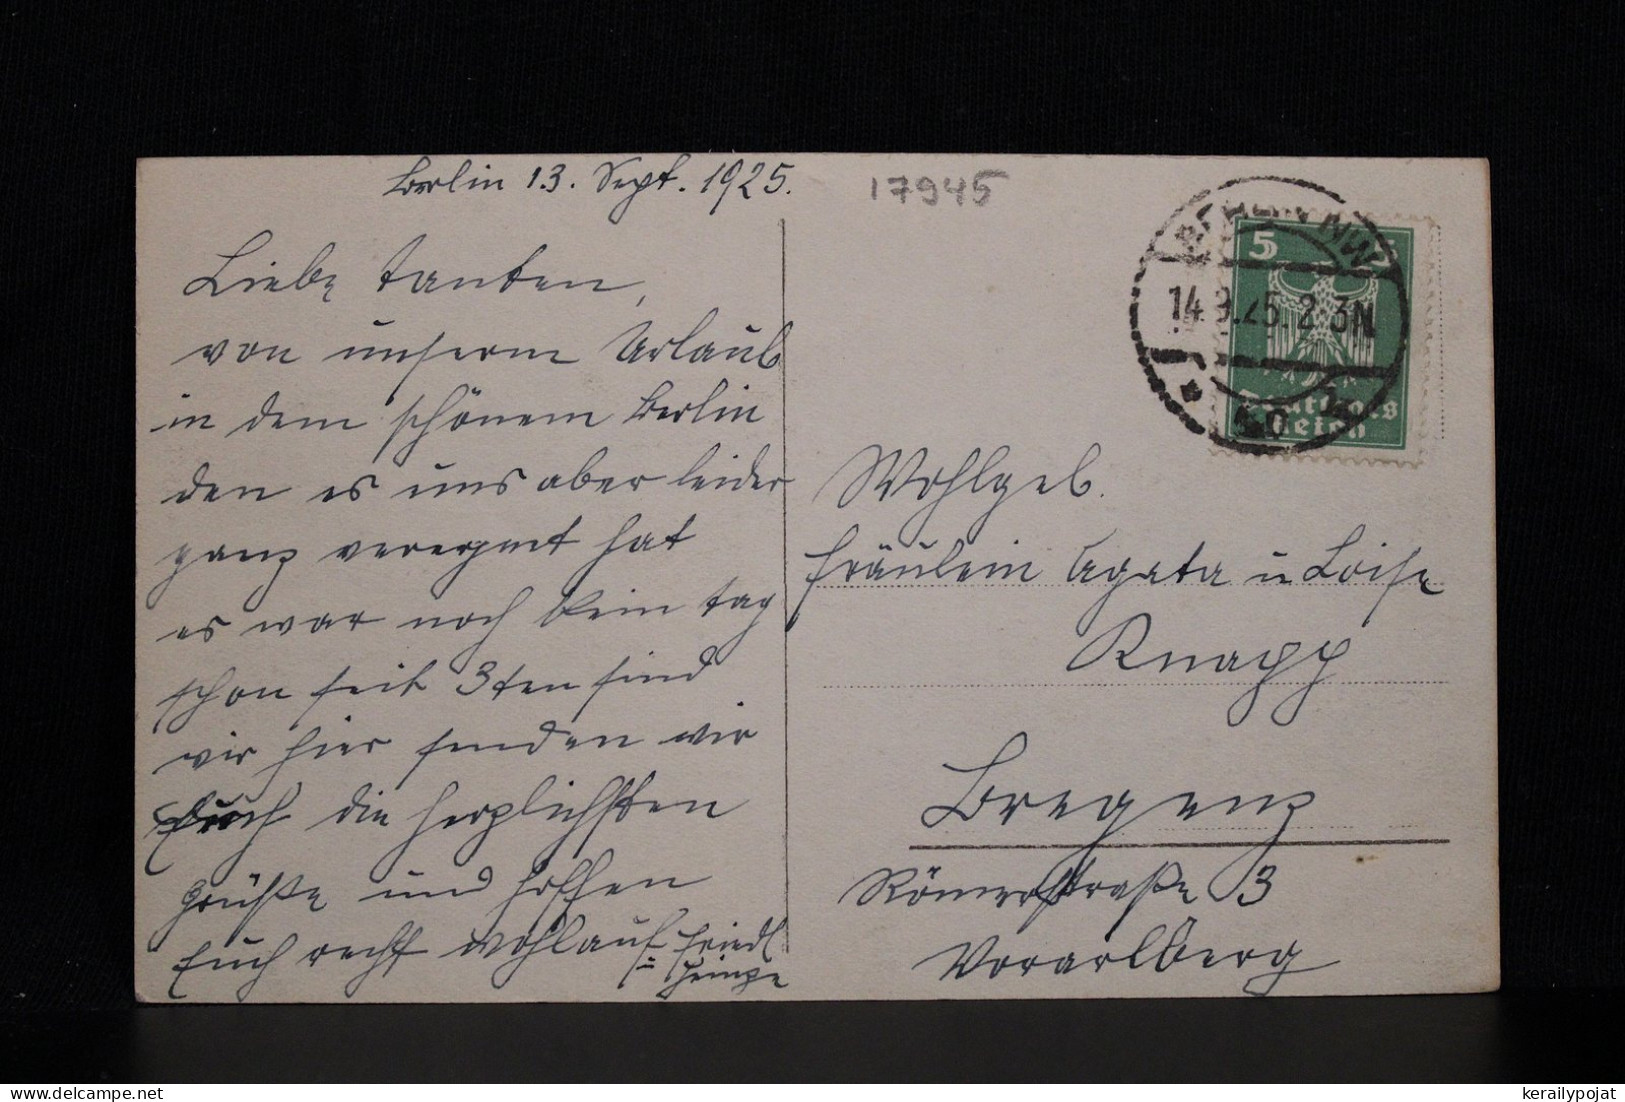 Berlin 13. Sept. 1925.
17945
Liebe Tanten,
von unserm Urlaub
in dem schönem Berlin
den es uns aber leider
ganz verregnet hat
es war noch kein tag
schon seit 3ten sind
wir hier senden wir
Euch die herzlichsten
Grüße und hoffen
Euch recht wohlauf Friedl
u Heinze
5 5
Deutsches
Reich
BERLIN NW
14.9.25.2-3N
* 40
Wohlgeb.
Fräulein Agata u Loise
Knapp
Bregenz
Römerstraße 3
Vorarlberg
kerailypojat